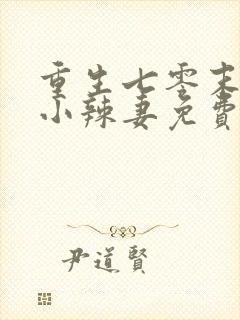 重生七零末
小辣妻免費
尹道賢